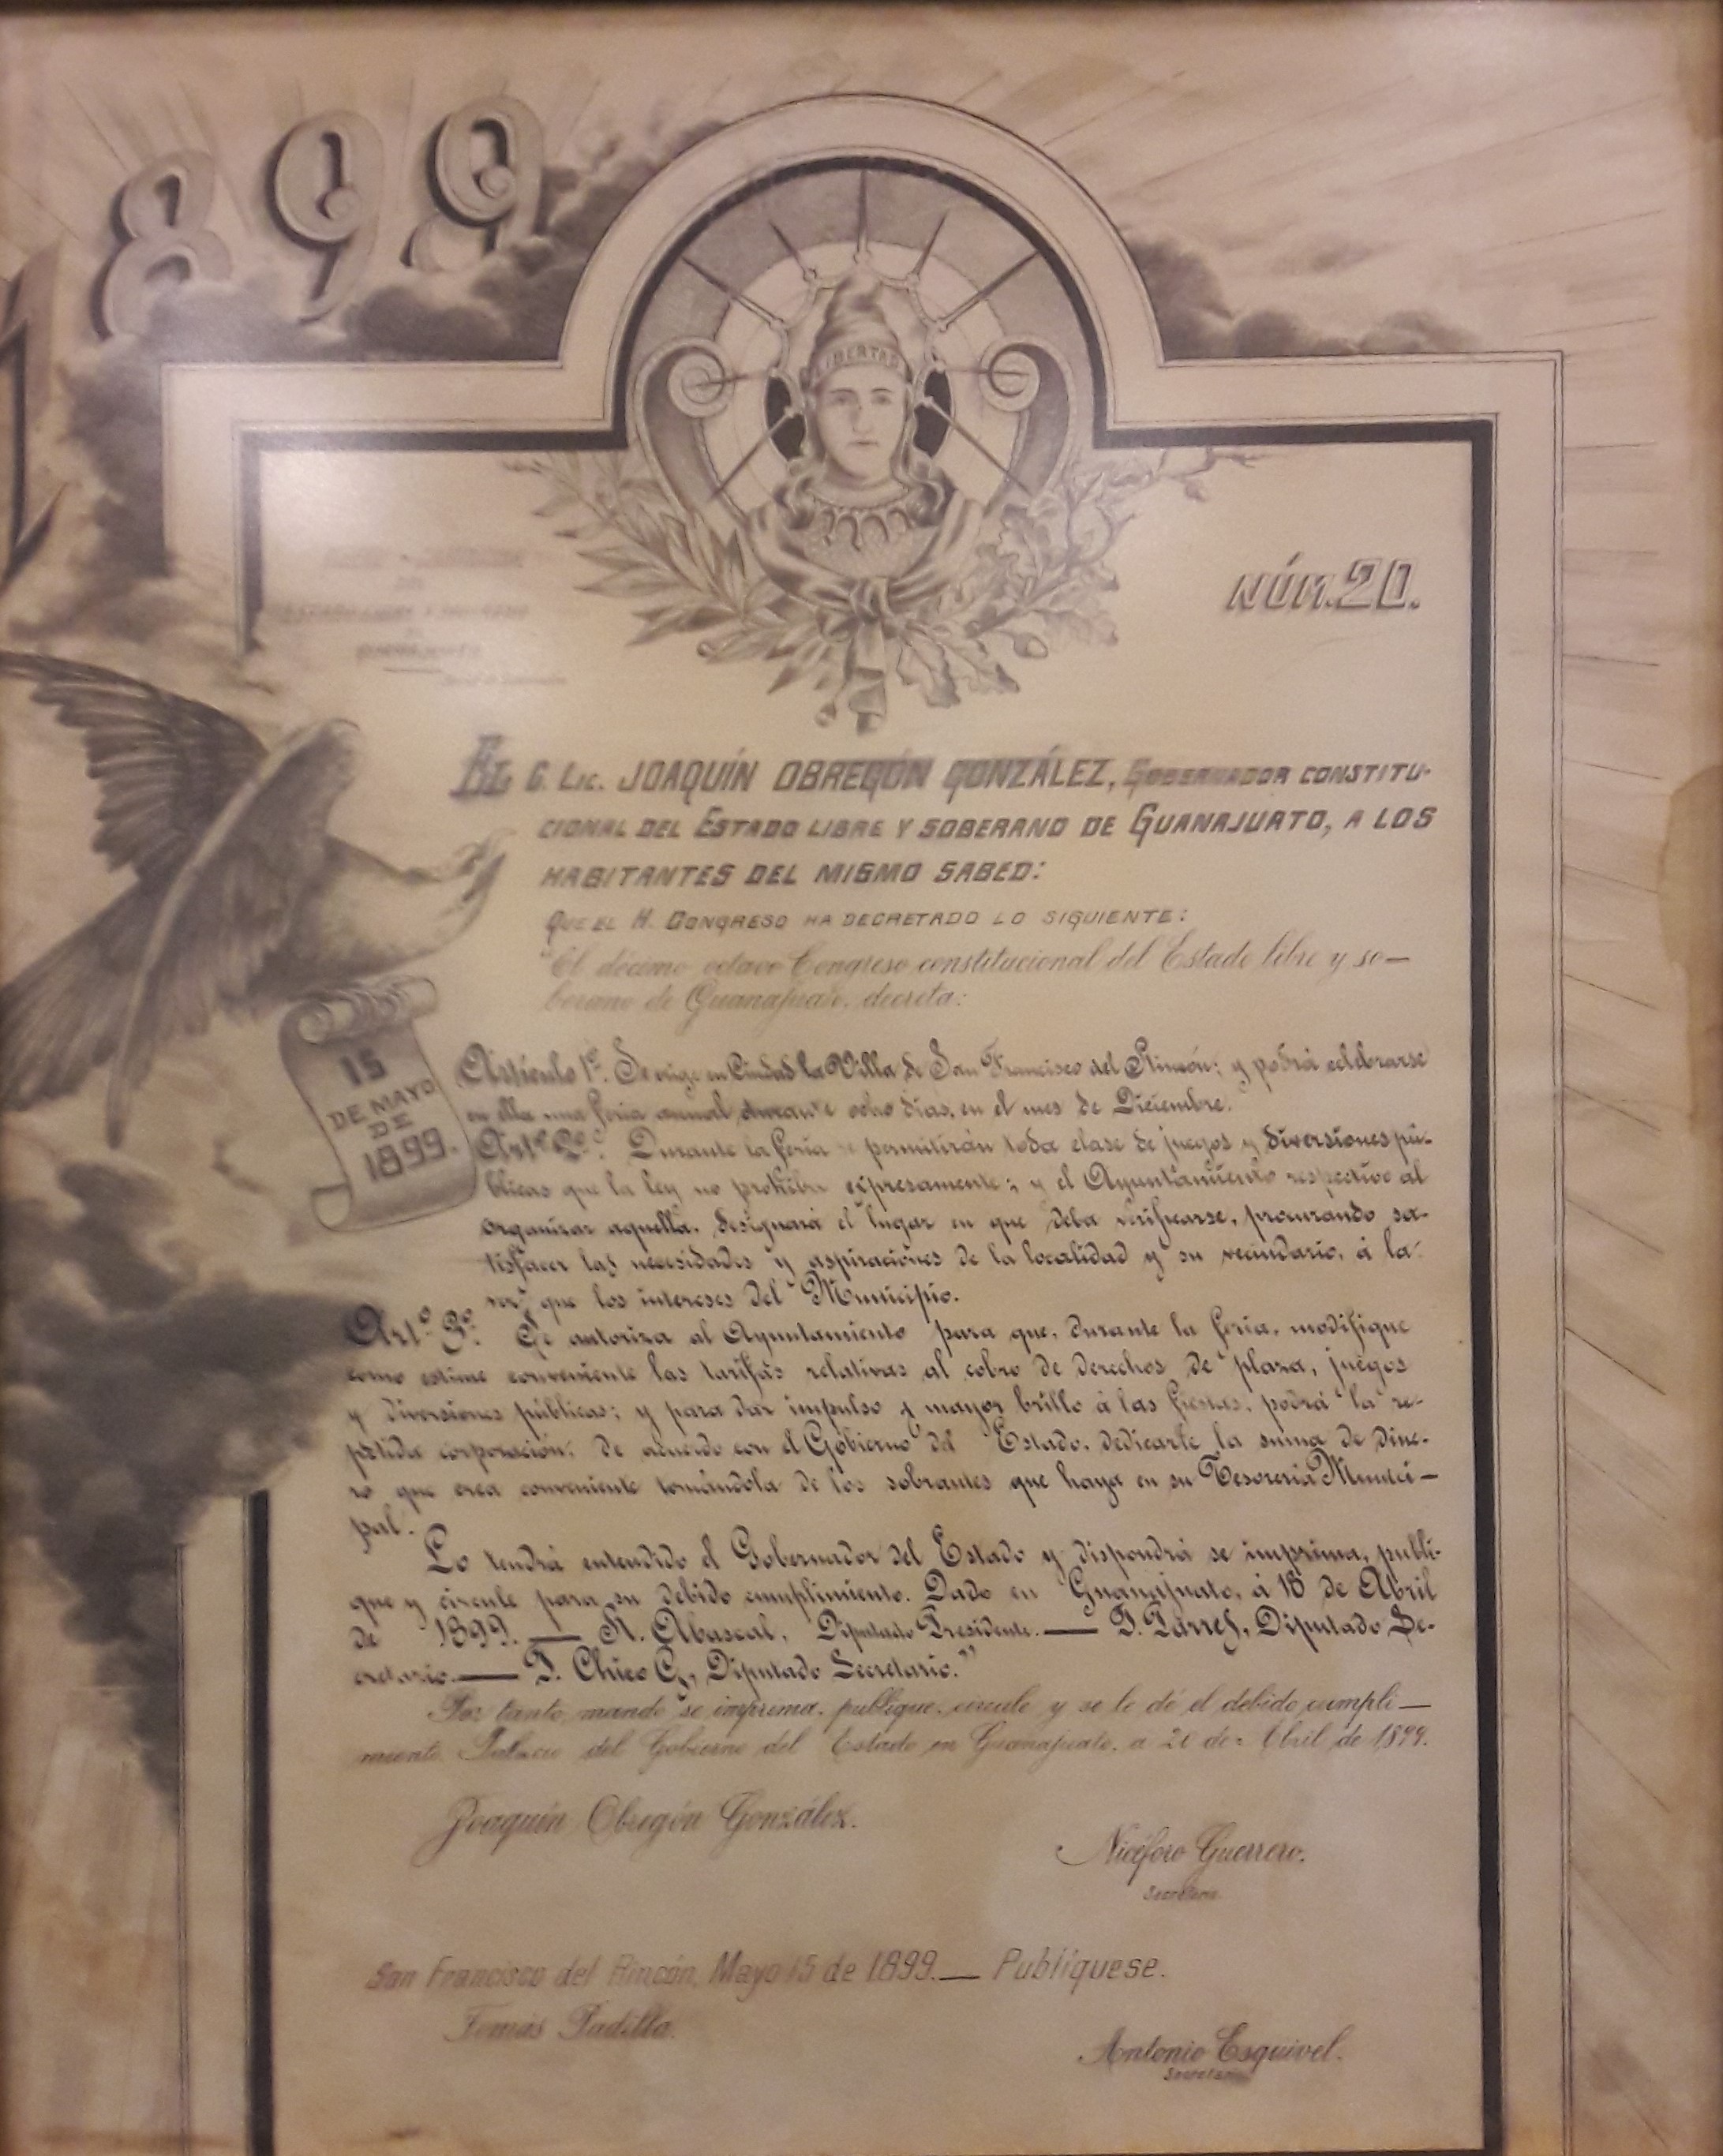 1899
LIBERTAD
NÚM. 20.
EL C. LIC. JOAQUÍN OBREGÓN GONZÁLEZ, GOBERNADOR CONSTITU-
CIONAL DEL ESTADO LIBRE Y SOBERANO DE GUANAJUATO, A LOS
HABITANTES DEL MISMO SABED:
QUE EL H. CONGRESO HA DECRETADO LO SIGUIENTE:
"El décimo octavo Congreso constitucional del Estado libre y so-
berano de Guanajuato, decreta:
15
DE MAYO
DE
1899.
Artículo 1º. Se erige en Ciudad la Villa de San Francisco del Rincón; y podrá celebrarse
en ella una feria annual durante ocho días, en el mes de Diciembre.
Artº 2º. Durante la feria se permitirán toda clase de juegos y diversiones pú-
blicas que la ley no prohiba expresamente; y el Ayuntamiento respectivo al
organizar aquella, designará el lugar en que deba verificarse, procurando sa-
tisfacer las necesidades y aspiraciones de la localidad y su vecindario, á la
vez que los intereses del Municipio.
Artº 3º. Se autoriza al Ayuntamiento para que, durante la feria, modifique
como estime conveniente las tarifas relativas al cobro de derechos de plaza, juegos
y diversiones públicas; y para dar impulso y mayor brillo á las fiestas, podrá la re-
petida corporación, de acuerdo con el Gobierno del Estado, dedicarle la suma de dine-
ro que crea conveniente tomándola de los sobrantes que haya en su Tesorería Munici-
pal.
Lo tendrá entendido el Gobernador del Estado y dispondrá se imprima, publi-
que y circule para su debido cumplimiento. Dado en Guanajuato, á 18 de Abril
de 1899. — R. Abascal, Diputado Presidente. — P. Parres, Diputado Se-
cretario. — F. Chico G., Diputado Secretario."
Por tanto, mando se imprima, publique, circule y se le dé el debido cumpli-
miento. Palacio del Gobierno del Estado en Guanajuato, a 20 de Abril de 1899.
Joaquín Obregón González.
Nicéforo Guerrero.
Secretario
San Francisco del Rincón, Mayo 15 de 1899. — Publíquese.
Tomás Padilla.
Antonio Esquivel.
Secretario